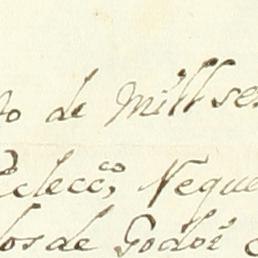 to de Mill se
Eclecc.co, Neque
los de Godoi